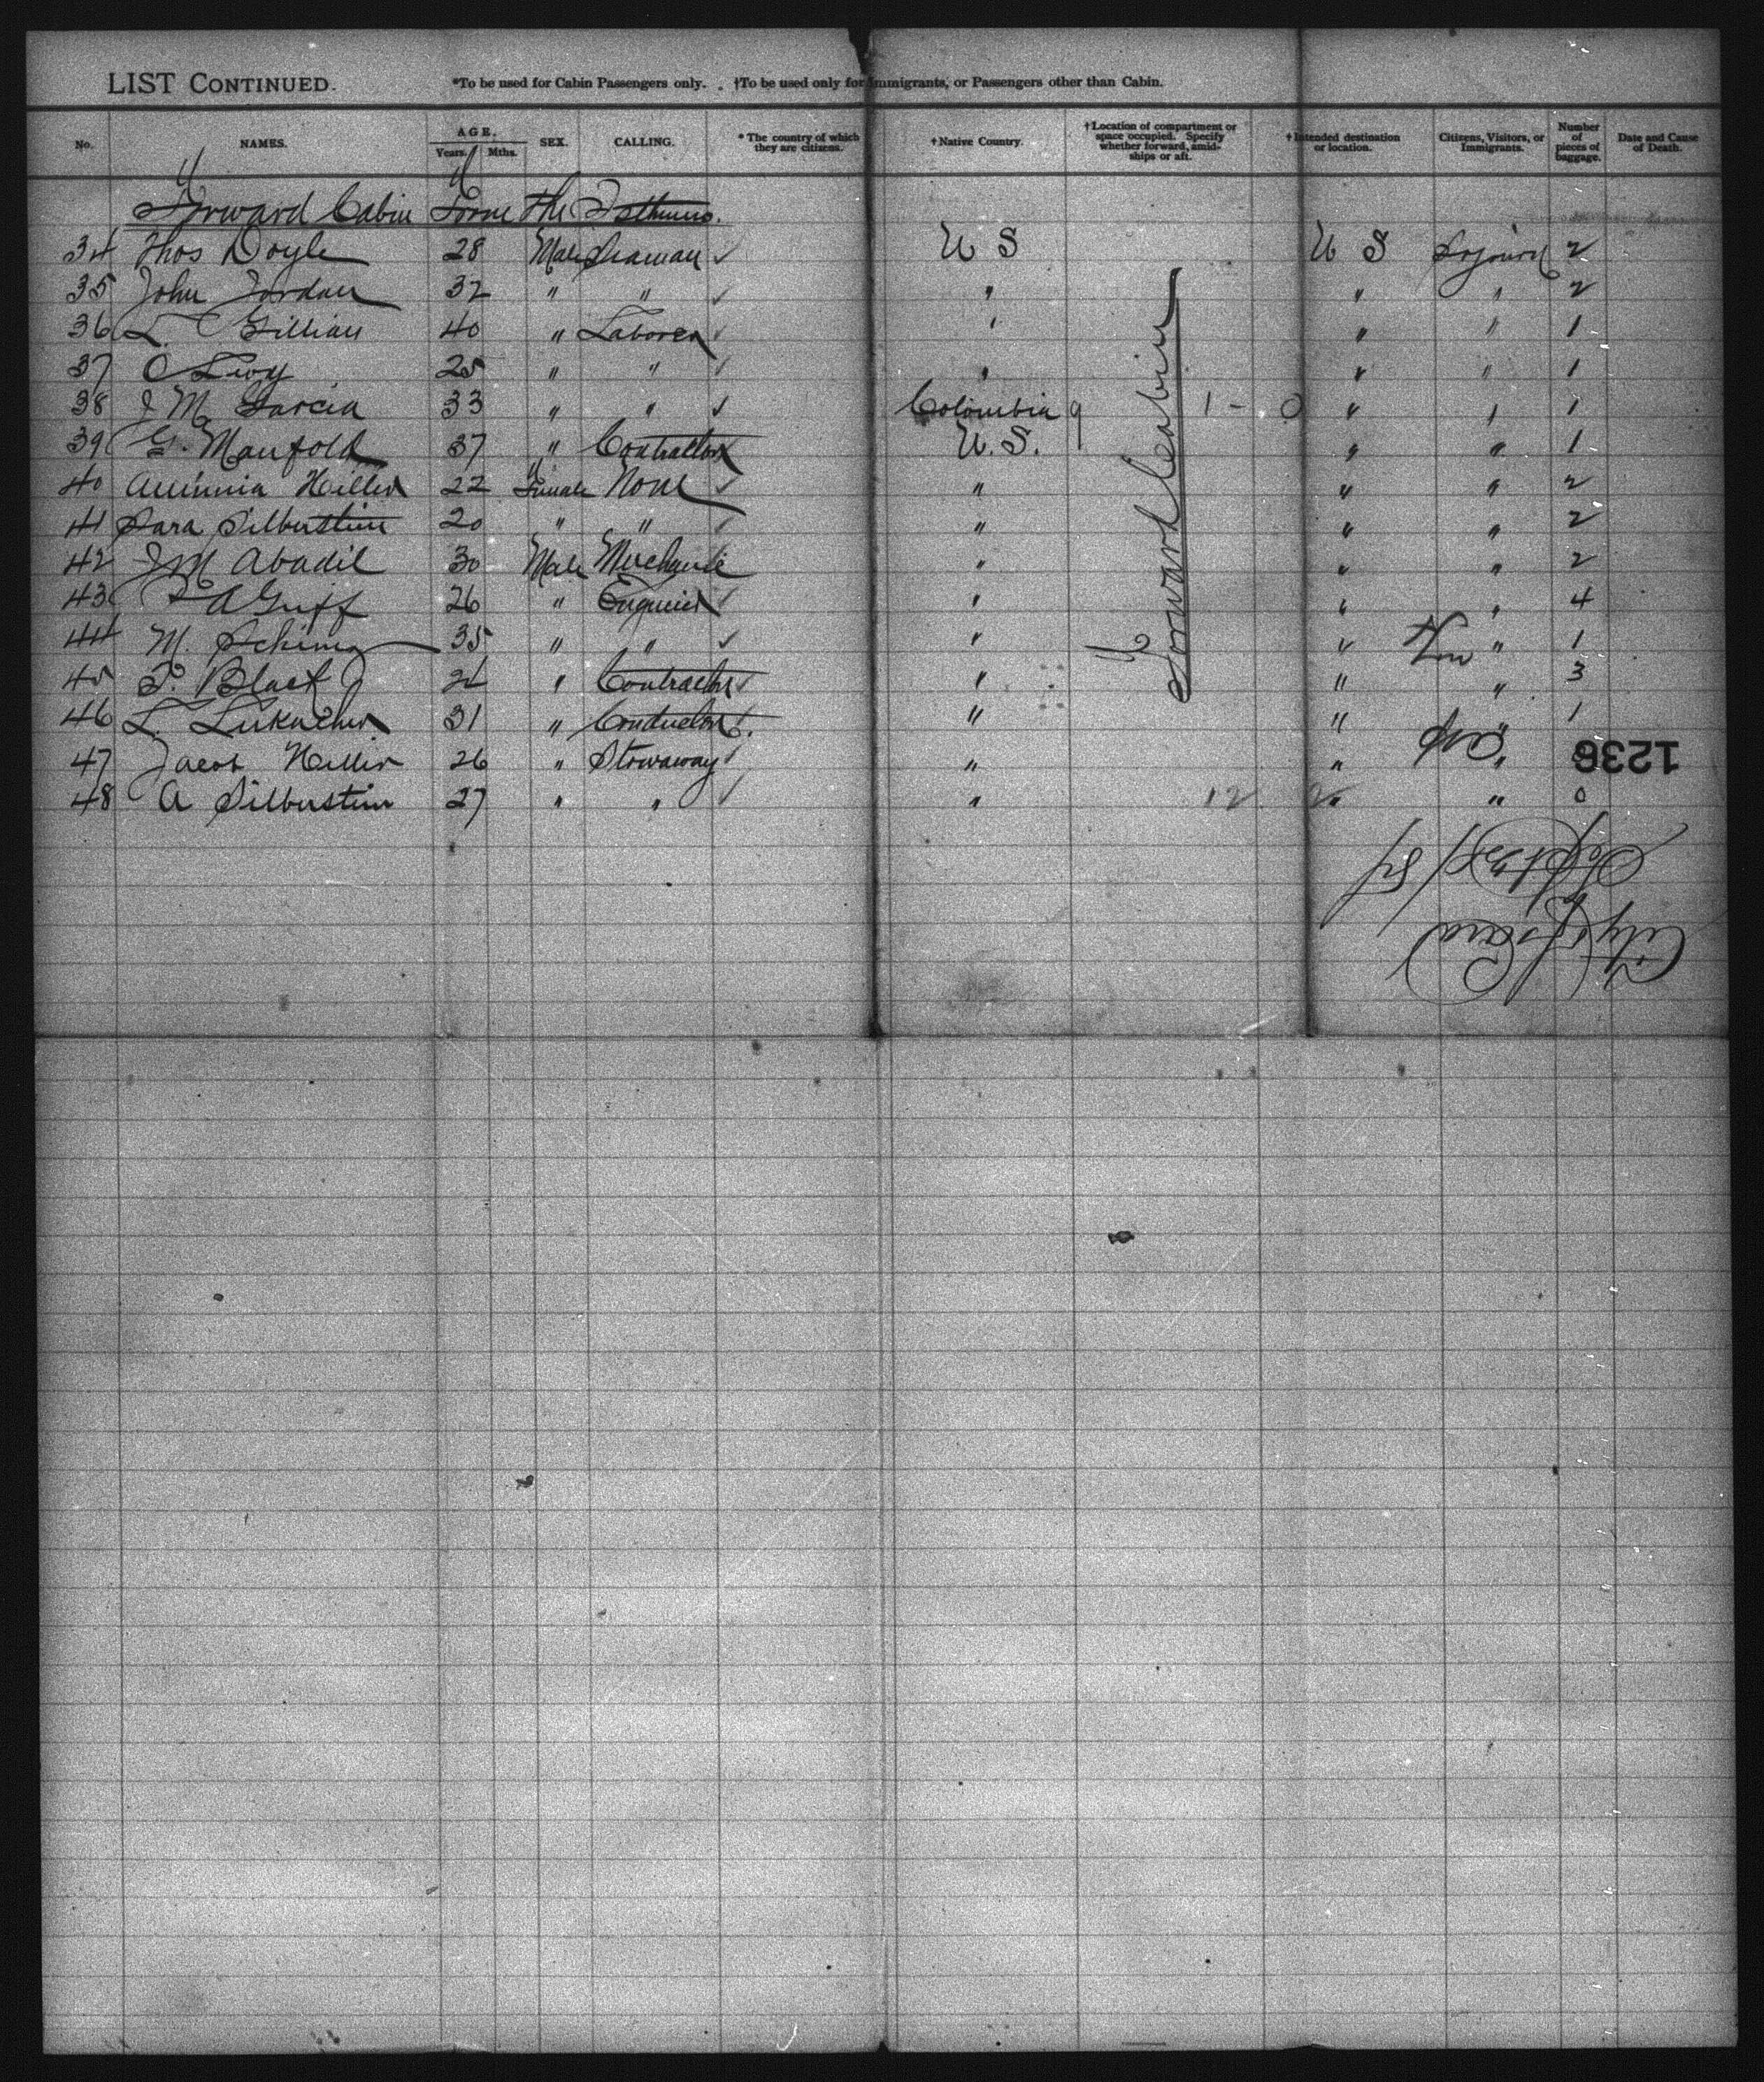 LIST CONTINUED. *To be used for Cabin Passengers only. †To be used only for Immigrants, or Passengers other than Cabin.
No. NAMES. AGE. Years. Mths. SEX. CALLING. * The country of which they are citizens. †Native Country. †Location of compartment or space occupied. Specify whether forward, amidships or aft. †Intended destination or location. Citizens, Visitors, or Immigrants. Number of pieces of baggage. Date and Cause of Death.
Forward Cabin From the Isthmus.
34 Thos Doyle 28 Male Seaman ✓ U S U S Sojourn 2
35 John Jordan 32 " " ✓ " " " 2
36 L. Gillian 40 " Laborer ✓ " " " 1
37 Levy 25 " " ✓ " " " 1
38 J M Garcia 33 " " ✓ Colombia 9 1 - 0 " " 1
39 G. Manfold 37 " Contractor U. S. " " 1
40 Hiller 22 Female None ✓ " " " 2
41 Sara Silberstein 20 " " ✓ " " " 2
42 J M Abadil 30 Male " " " 2
43 A Griff 26 " Engineer ✓ " " " 4
44 M. 35 " " ✓ " " " 1
45 Black " Contractor ✓ " " " 3
46 L. 31 " Conductor " " " 1
47 Jacob Hiller 26 " Stowaway ✓ " " "
48 A Silberstein 27 " " ✓ " 12 " " 0
Forward Cabin
1236
City of Para